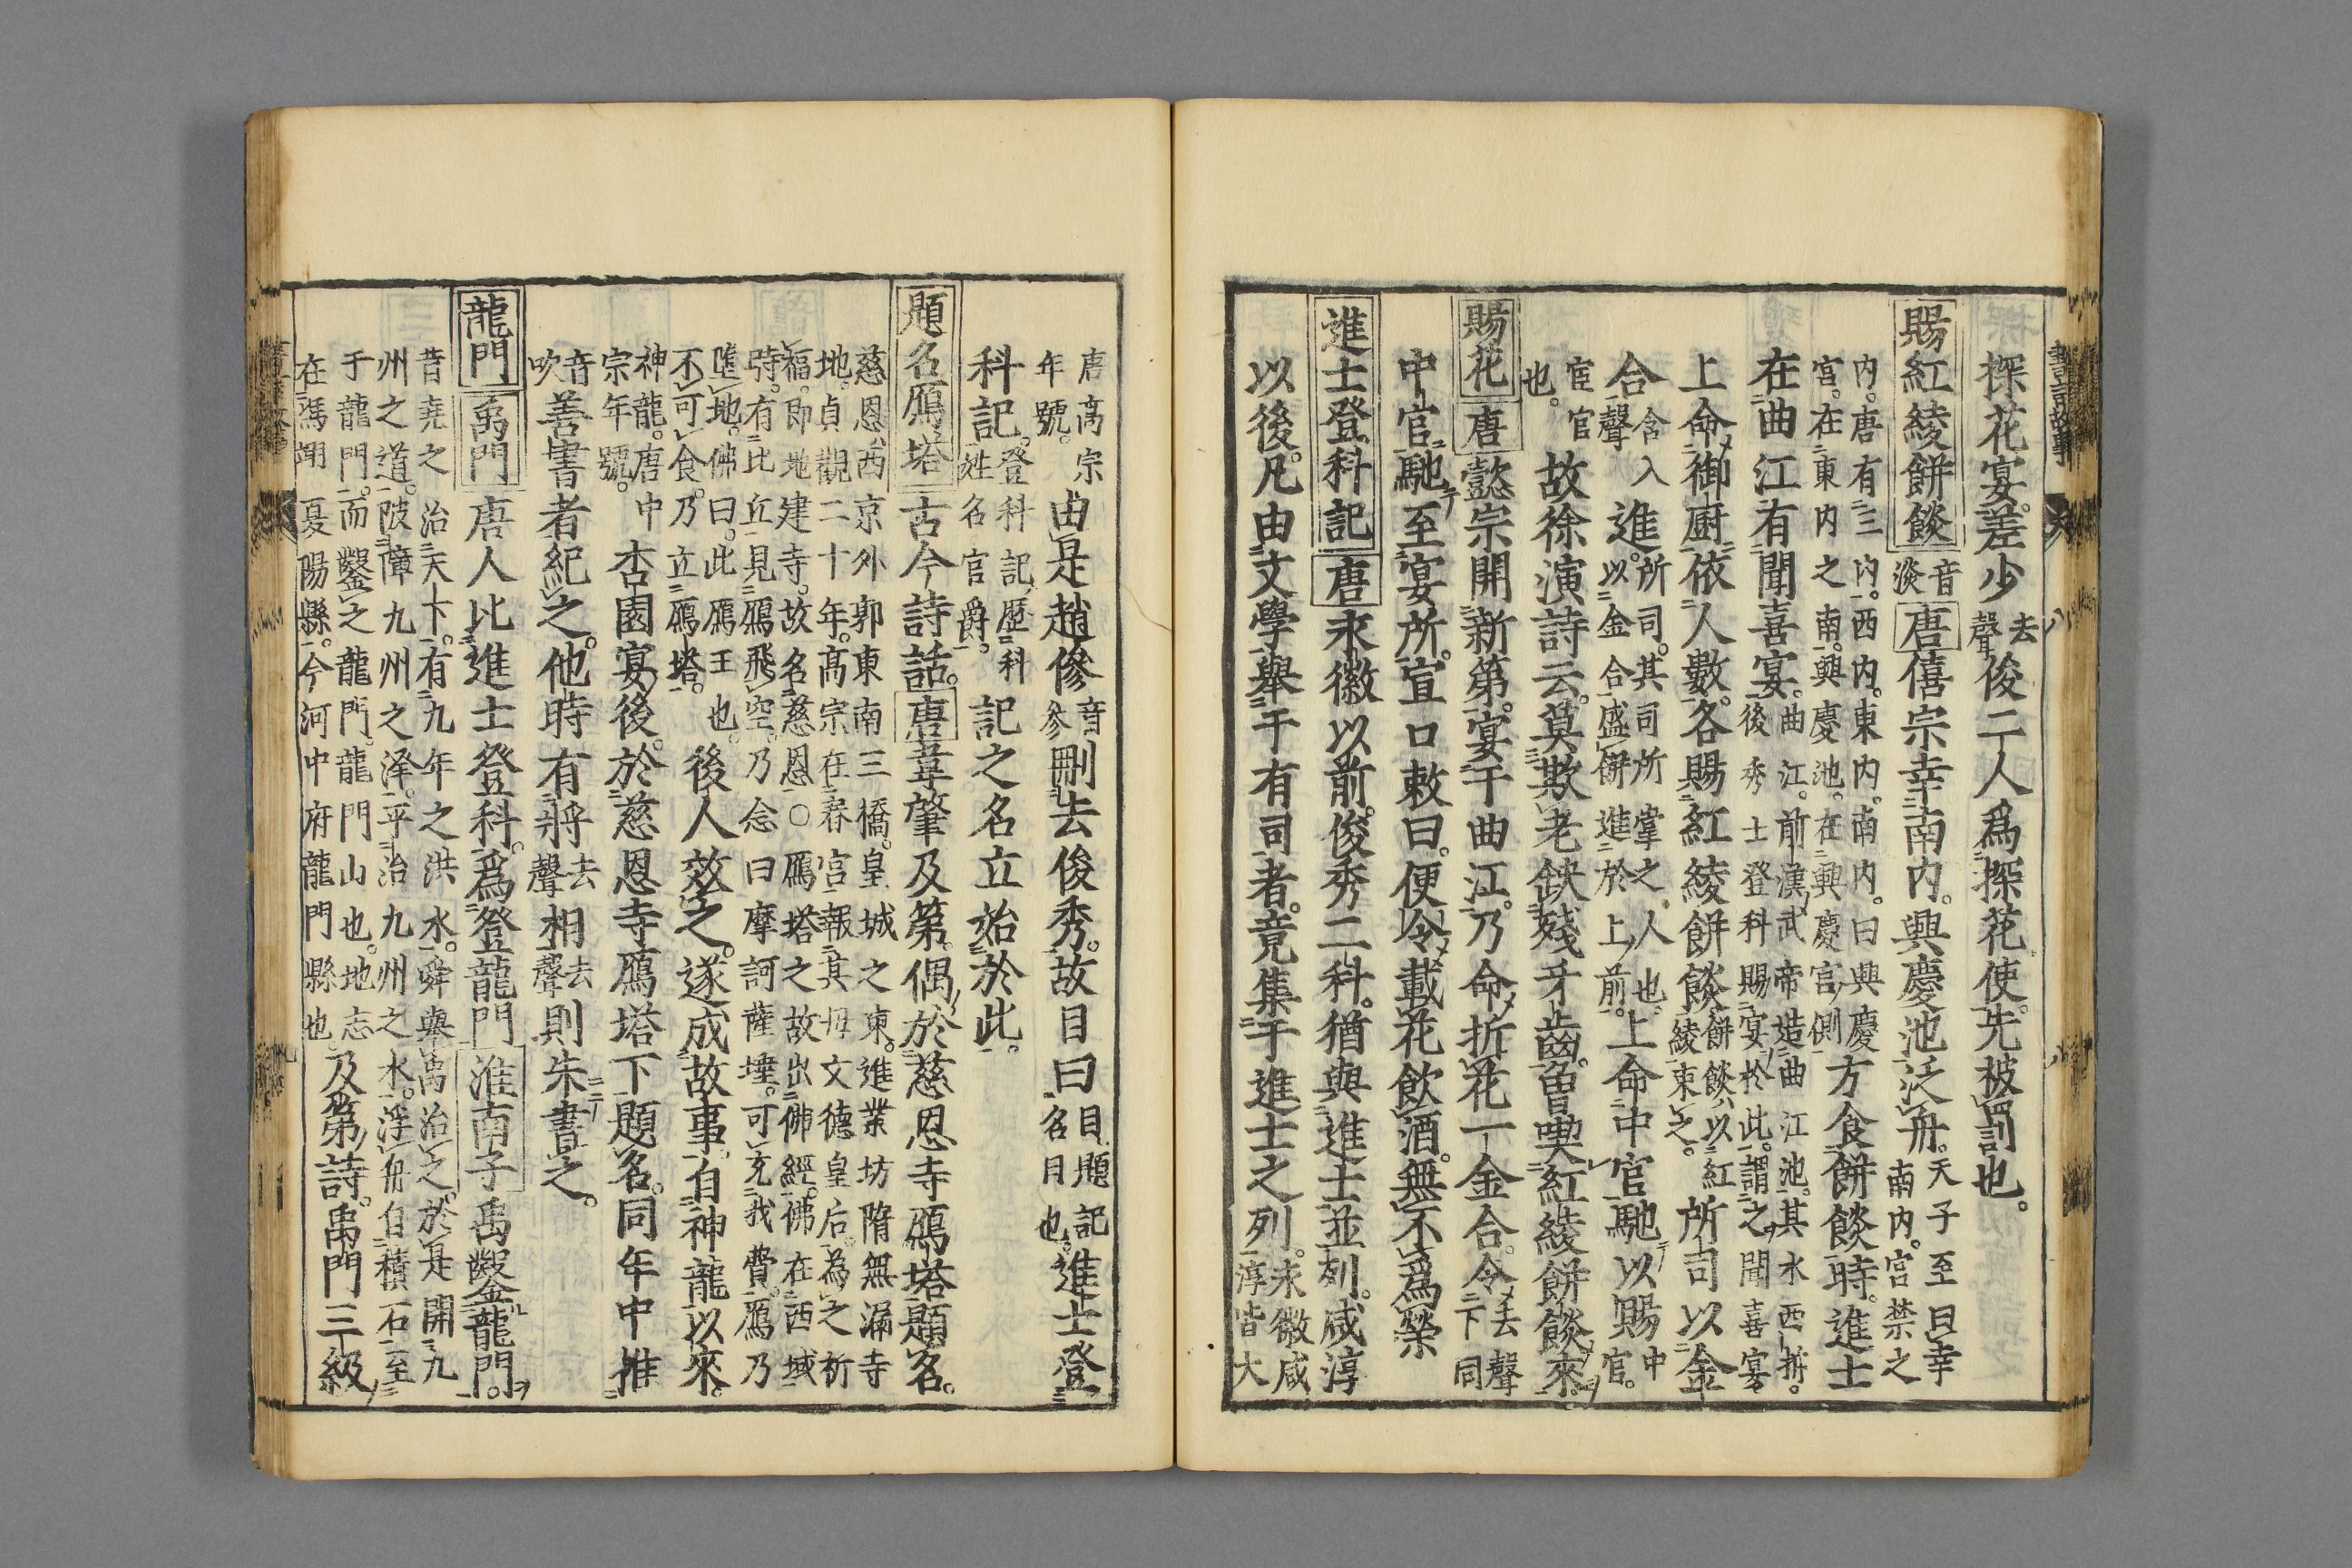 探花宴差少去聲俊二人爲探花使先被罰也
賜紅綾餅餤音淡唐僖宗幸南内興慶池泛舟天子至曰幸南内宮禁之
内唐有三内西内東内南内曰興慶宮在東内之南興慶池在興慶宮側方食餅餤時進士
在曲江有聞喜宴曲江前漢武帝造曲江池其水西折後秀士登科賜宴於此謂之聞喜宴
上命御廚依人數各賜紅綾餅餤餅餤以紅綾束之所司以金
合含入聲進所司其司所掌之人也以金合盛餅進於上前上命中官馳以賜中官
宦官也故徐演詩云莫欺老缺殘牙齒曾喫紅綾餅餤來
賜花唐懿宗開新第宴于曲江乃命折花一金合令去聲下同
中官馳至宴所宣口敕曰便令戴花飲酒無不爲榮
進士登科記唐永徽以前俊秀二科猶與進士並列咸淳永徽咸淳皆大
以後凡由文學舉于有司者竟集于進士之列
唐高宗年號由是趙傪音參刪去俊秀故目曰目題記名目也進士登
科記登科記歷科姓名官爵記之名立始於此
題名鴈塔古今詩話唐韋肇及第偶於慈恩寺鴈塔題名
慈恩西京外郭東南三橋皇城之東進業坊隋無漏寺地貞觀二十年高宗在春宮報其母文德皇后為之祈
福即地建寺故名慈恩○鴈塔之故出佛經佛在西域時有比丘見鴈飛空乃念曰摩訶薩埵可充我費鴈乃
墮地佛曰此鴈王也不可食乃立鴈塔後人效之遂成故事自神龍以來
神龍唐中宗年號杏園宴後於慈恩寺鴈塔下題名同年中推
音吹善書者紀之他時有將去聲相去聲則朱書之
龍門禹門唐人比進士登科爲登龍門淮南子禹鑿龍門
昔堯之治天下有九年之洪水舜與禹治之於是開九州之道陂障九州之澤平治九州之水浮舟自積石至
于龍門而鑿之龍門龍門山也地志在馮翊夏陽縣今河中府龍門縣也及第詩禹門三級